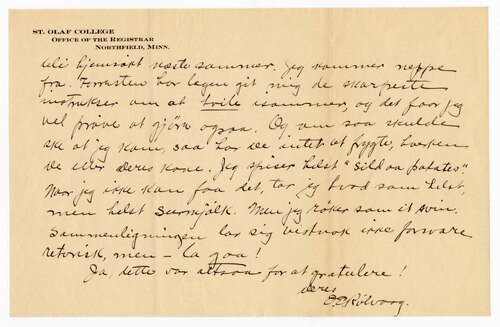 ST. OLAF COLLEGE
OFFICE OF THE REGISTRAR
NORTHFIELD, MINN.
bli hjemsøkt næste sommer. Jeg kommer neppe
fra. Forresten har lægen git mig de skarpeste
instrukser om at hvile isommer, og det faar jeg
vel prøve at gjøre ogsaa. Og om saa skulde
ske at jeg kom, saa har De intet at frygte, hverken
De eller Deres kone. Jeg spiser helst "sild aa potates".
Naar jeg ikke kan faa det, tar jeg hvad som helst,
men helst surmjølk. Men jeg røker som et svin.
Sammenligningen lar sig vistnok ikke forsvare
retorisk, men – la gaa!
Ja, dette var altsaa for at gratulere!
Deres
O.E. Rølvaag.